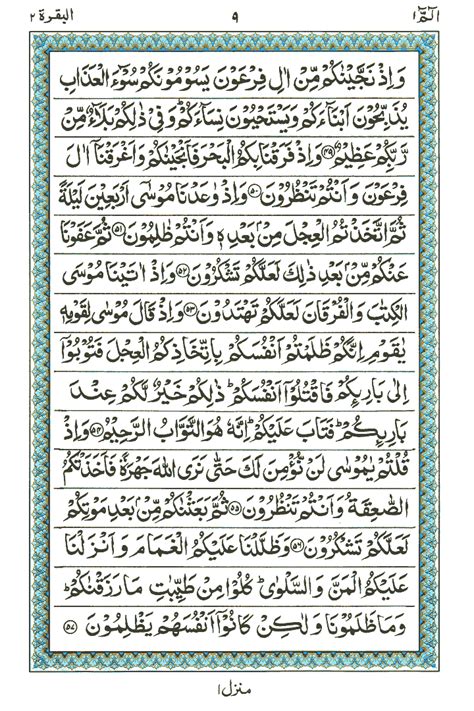 الٓمّٓ ١ ٩ البقرة ٢
وَاِذْ نَجَّيْنٰكُمْ مِّنْ اٰلِ فِرْعَوْنَ يَسُوْمُوْنَكُمْ سُوْٓءَ الْعَذَابِ
يُذَبِّحُوْنَ اَبْنَآءَكُمْ وَيَسْتَحْيُوْنَ نِسَآءَكُمْ ؕ وَفِيْ ذٰلِكُمْ بَلَآءٌ مِّنْ
رَّبِّكُمْ عَظِيْمٌ ﴿۴۹﴾ وَاِذْ فَرَقْنَا بِكُمُ الْبَحْرَ فَاَنْجَيْنٰكُمْ وَاَغْرَقْنَآ اٰلَ
فِرْعَوْنَ وَاَنْتُمْ تَنْظُرُوْنَ ﴿۵۰﴾ وَاِذْ وٰعَدْنَا مُوْسٰٓى اَرْبَعِيْنَ لَيْلَةً
ثُمَّ اتَّخَذْتُمُ الْعِجْلَ مِنْۢ بَعْدِهٖ وَاَنْتُمْ ظٰلِمُوْنَ ﴿۵۱﴾ ثُمَّ عَفَوْنَا
عَنْكُمْ مِّنْۢ بَعْدِ ذٰلِكَ لَعَلَّكُمْ تَشْكُرُوْنَ ﴿۵۲﴾ وَاِذْ اٰتَيْنَا مُوْسَى
الْكِتٰبَ وَالْفُرْقَانَ لَعَلَّكُمْ تَهْتَدُوْنَ ﴿۵۳﴾ وَاِذْ قَالَ مُوْسٰى لِقَوْمِهٖ
يٰقَوْمِ اِنَّكُمْ ظَلَمْتُمْ اَنْفُسَكُمْ بِاتِّخَاذِكُمُ الْعِجْلَ فَتُوْبُوْٓا
اِلٰى بَارِئِكُمْ فَاقْتُلُوْٓا اَنْفُسَكُمْ ؕ ذٰلِكُمْ خَيْرٌ لَّكُمْ عِنْدَ
بَارِئِكُمْ ؕ فَتَابَ عَلَيْكُمْ ؕ اِنَّهٗ هُوَ التَّوَّابُ الرَّحِيْمُ ﴿۵۴﴾ وَاِذْ
قُلْتُمْ يٰمُوْسٰى لَنْ نُّؤْمِنَ لَكَ حَتّٰى نَرَى اللّٰهَ جَهْرَةً فَاَخَذَتْكُمُ
الصّٰعِقَةُ وَاَنْتُمْ تَنْظُرُوْنَ ﴿۵۵﴾ ثُمَّ بَعَثْنٰكُمْ مِّنْۢ بَعْدِ مَوْتِكُمْ
لَعَلَّكُمْ تَشْكُرُوْنَ ﴿۵۶﴾ وَظَلَّلْنَا عَلَيْكُمُ الْغَمَامَ وَاَنْزَلْنَا
عَلَيْكُمُ الْمَنَّ وَالسَّلْوٰى ؕ كُلُوْا مِنْ طَيِّبٰتِ مَا رَزَقْنٰكُمْ ؕ
وَمَا ظَلَمُوْنَا وَلٰكِنْ كَانُوْٓا اَنْفُسَهُمْ يَظْلِمُوْنَ ﴿۵۷﴾
منزل ١